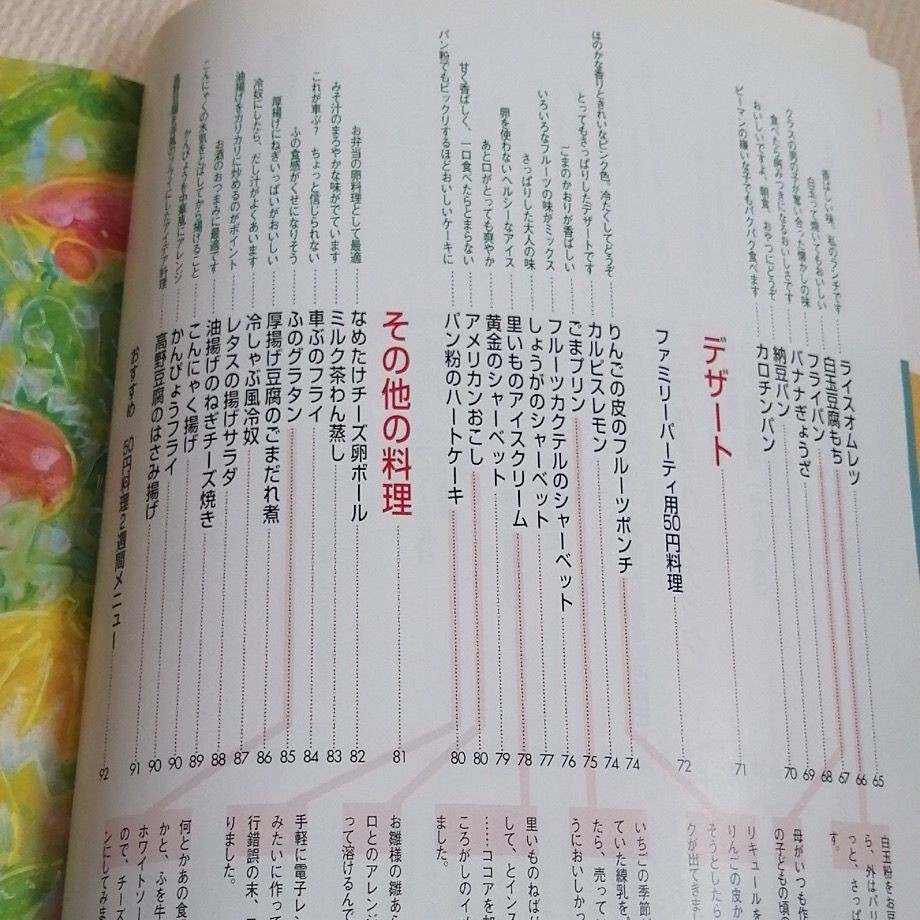 香ばしい味、私のランチです……ライスオムレツ……65
白玉って焼いてもおいしい……白玉豆腐もち……66
クラスの男の子が奪い合った懐かしの味……フライパン……67
食べたら病みつきになるおいしさです……バナナぎょうざ……68
おいしいですよ。朝食、おやつにどうぞ……納豆パン……69
ピーマンの嫌いな子でもパクパク食べます……カロチンパン……70
デザート……71
ファミリーパーティ用50円料理……72
ほのかな香りときれいなピンク色。冷たくしてどうぞ……りんごの皮のフルーツポンチ……74
とってもさっぱりしたデザートです……カルピスレモン……74
ごまのかおりが香ばしい……ごまプリン……75
いろいろなフルーツの味がミックス……フルーツカクテルのシャーベット……76
さっぱりした大人の味……しょうがのシャーベット……77
卵を使わないヘルシーなアイス……里いものアイスクリーム……78
あと口がとっても爽やか……黄金のシャーベット……79
甘く香ばしく、一口食べたらとまらない……アメリカンおこし……80
パン粉でもビックリするほどおいしいケーキに……パン粉のハートケーキ……80
その他の料理……81
お弁当の卵料理として最適……なめたけチーズ卵ボール……82
みそ汁のまろやかな味がでています……ミルク茶わん蒸し……83
これが車ぶ? ちょっと信じられない……車ぶのフライ……84
ふの食感がくせになりそう……ふのグラタン……85
厚揚げにねぎいっぱいがおいしい……厚揚げ豆腐のごまだれ煮……86
冷奴にしたら、だし汁がよくあいます……冷しゃぶ風冷奴……87
油揚げをカリカリに炒めるのがポイント……レタスの揚げサラダ……88
お酒のおつまみに最適です……油揚げのねぎチーズ焼き……89
こんにゃくの水気をとばしてから揚げること……こんにゃく揚げ……90
かんぴょうを中華風にアレンジ……かんぴょうフライ……90
高野豆腐を洋風のフライにしたアイデア料理……高野豆腐のはさみ揚げ……91
おすすめ 50円料理2週間メニュー……92
白玉粉をお豆
ら、外はパ
っと、さっぱ
す。
母がいつも作
の子どもの頃
リキュールを
りんごの皮か
そうとしたら
クが出てきま
いちごの季節
ていた練乳を
たら、売って
うにおいしかっ
里いものねばり
して、とインス
……ココアを加
ころがしのイメ
ました。
お雛様の雛あら
口とのアレンジ
って溶けるんで
手軽に電子レン
みたいに作って
行錯誤の末、こ
りました。
何とかあの食
かと、ふを牛
ホワイトソー
ので、チーズ
ンにしてみま